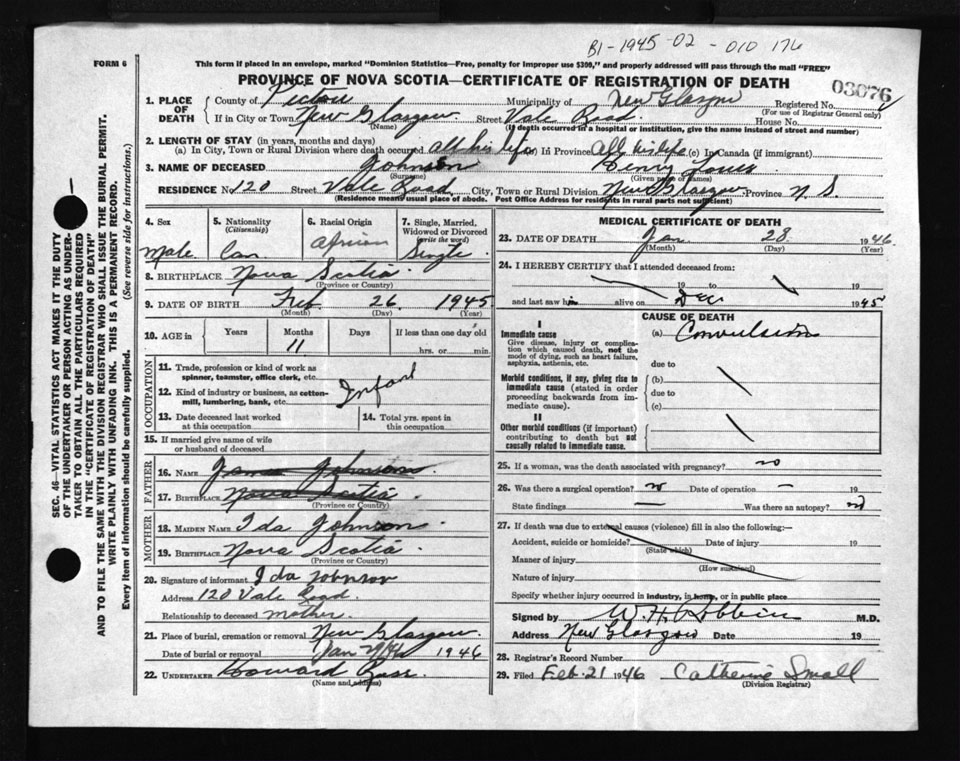 B1-1945-02-010176
FORM 6
This form if placed in an envelope, marked "Dominion Statistics—Free, penalty for improper use $300," and properly addressed will pass through the mail "FREE"
PROVINCE OF NOVA SCOTIA—CERTIFICATE OF REGISTRATION OF DEATH
03076
1. PLACE OF DEATH
County of Pictou Municipality of New Glasgow Registered No.
(For use of Registrar General only)
If in City or Town New Glasgow Street Vale Road House No.
(Name) (If death occurred in a hospital or institution, give the name instead of street and number)
2. LENGTH OF STAY (in years, months and days)
(a) In City, Town or Rural Division where death occurred all his life In Province All his life In Canada (if immigrant)
3. NAME OF DECEASED Johnson Henry
(Surname) (Given name or names)
RESIDENCE No. 120 Street Vale Road City, Town or Rural Division New Glasgow Province N. S.
(Residence means usual place of abode. Post Office Address for residents in rural parts not sufficient)
4. Sex
Male
5. Nationality
(Citizenship)
Can
6. Racial Origin
African
7. Single, Married, Widowed or Divorced
(write the word)
Single
8. BIRTHPLACE Nova Scotia
(Province or Country)
9. DATE OF BIRTH Feb 26 1945
(Month) (Day) (Year)
10. AGE in Years Months Days If less than one day old
11 hrs. or min.
OCCUPATION
11. Trade, profession or kind of work as spinner, teamster, office clerk, etc.
Infant
12. Kind of industry or business, as cotton-mill, lumbering, bank, etc.
13. Date deceased last worked at this occupation
14. Total yrs. spent in this occupation
15. If married give name of wife or husband of deceased
FATHER
16. NAME James Johnson
17. BIRTHPLACE Nova Scotia
(Province or Country)
MOTHER
18. MAIDEN NAME Ida Johnson
19. BIRTHPLACE Nova Scotia
(Province or Country)
20. Signature of informant Ida Johnson
Address 120 Vale Road
Relationship to deceased mother
21. Place of burial, cremation or removal New Glasgow
Date of burial or removal Jan 29/46 1946
22. UNDERTAKER Howard Ross
(Name and address)
MEDICAL CERTIFICATE OF DEATH
23. DATE OF DEATH Jan. 28 1946
(Month) (Day) (Year)
24. I HEREBY CERTIFY that I attended deceased from:
19 to 19
and last saw him alive on Dec 1945
CAUSE OF DEATH
I
Immediate cause
Give disease, injury or complication which caused death, not the mode of dying, such as heart failure, asphyxia, asthenia, etc.
(a) Convulsion
due to
Morbid conditions, if any, giving rise to immediate cause (stated in order proceeding backwards from immediate cause).
(b)
due to
(c)
II
Other morbid conditions (if important) contributing to death but not causally related to immediate cause.
25. If a woman, was the death associated with pregnancy? no
26. Was there a surgical operation? no Date of operation – 19
State findings — Was there an autopsy? no
27. If death was due to external causes (violence) fill in also the following:—
Accident, suicide or homicide? Date of injury 19
(State which)
Manner of injury
(How sustained)
Nature of injury
Specify whether injury occurred in industry, in home, or in public place
Signed by M.D.
Address New Glasgow Date 19
28. Registrar's Record Number
29. Filed Feb. 21 1946 Catherine Small
(Division Registrar)
SEC. 46—VITAL STATISTICS ACT MAKES IT THE DUTY
OF THE UNDERTAKER OR PERSON ACTING AS UNDER-
TAKER TO OBTAIN ALL THE PARTICULARS REQUIRED
IN THE "CERTIFICATE OF REGISTRATION OF DEATH"
AND TO FILE THE SAME WITH THE DIVISION REGISTRAR WHO SHALL ISSUE THE BURIAL PERMIT.
WRITE PLAINLY WITH UNFADING INK. THIS IS A PERMANENT RECORD.
Every item of information should be carefully supplied. (See reverse side for instructions.)